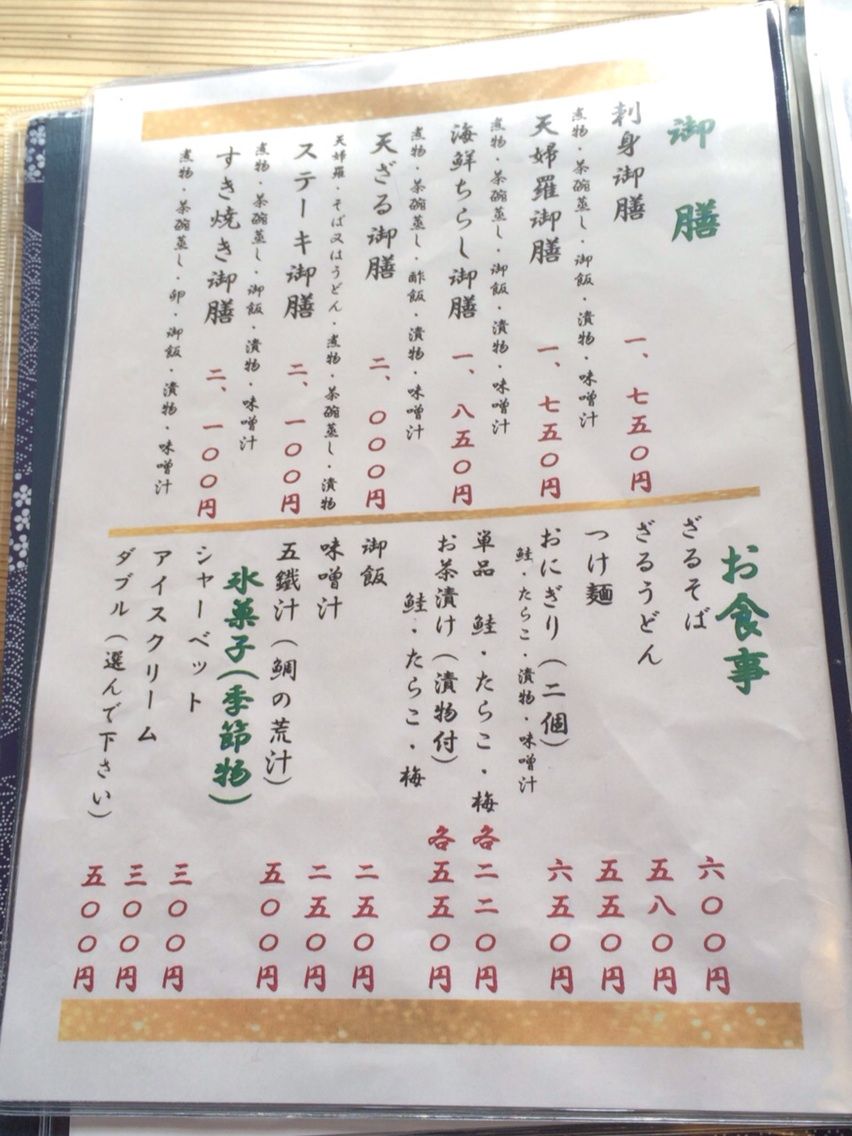 御膳
刺身御膳 一、七五〇円
煮物・茶碗蒸し・御飯・漬物・味噌汁
天婦羅御膳 一、七五〇円
煮物・茶碗蒸し・御飯・漬物・味噌汁
海鮮ちらし御膳 一、八五〇円
煮物・茶碗蒸し・酢飯・漬物・味噌汁
天ざる御膳 二、〇〇〇円
天婦羅・そば又はうどん・煮物・茶碗蒸し・漬物
ステーキ御膳 二、一〇〇円
煮物・茶碗蒸し・御飯・漬物・味噌汁
すき焼き御膳 二、一〇〇円
煮物・茶碗蒸し・卵・御飯・漬物・味噌汁
お食事
ざるそば 六〇〇円
ざるうどん 五八〇円
つけ麺 五五〇円
おにぎり(二個) 六五〇円
鮭・たらこ・漬物・味噌汁
単品 鮭・たらこ・梅 各二二〇円
お茶漬け(漬物付) 各五五〇円
鮭・たらこ・梅
御飯 二五〇円
味噌汁 二五〇円
五鐵汁(鯛の荒汁) 五〇〇円
氷菓子(季節物)
シャーベット 三〇〇円
アイスクリーム 三〇〇円
ダブル(選んで下さい) 五〇〇円